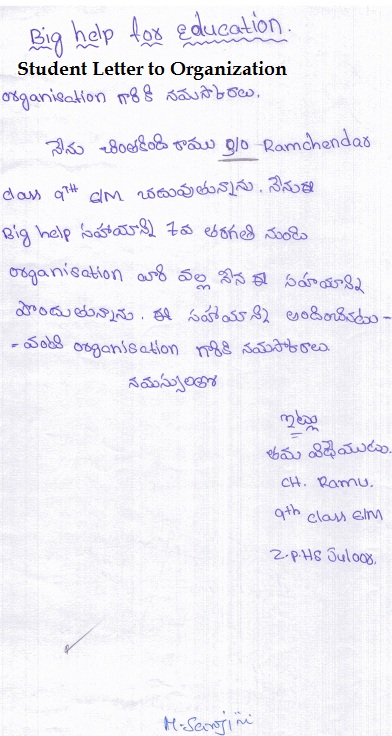 Big help for education.
Student Letter to Organization
organisation గారికి నమస్కారాలు.
నేను చింతకింది రాము S/o Ramchendar
class 9TH E/M చదువుతున్నాను. నేను ఈ
Big help సహాయాన్ని 7వ తరగతి నుండి
organisation వారి వల్ల నేను ఈ సహాయాన్ని
పొందుతున్నాను. ఈ సహాయాన్ని అందించినటు-
-వంటి organisation గారికి నమస్కారాలు.
నమస్సులతో
ఇట్లు
తమ విధేయుడు.
CH. Ramu.
9th class E/M
Z.P.HS Juloor.
M. Sarojini